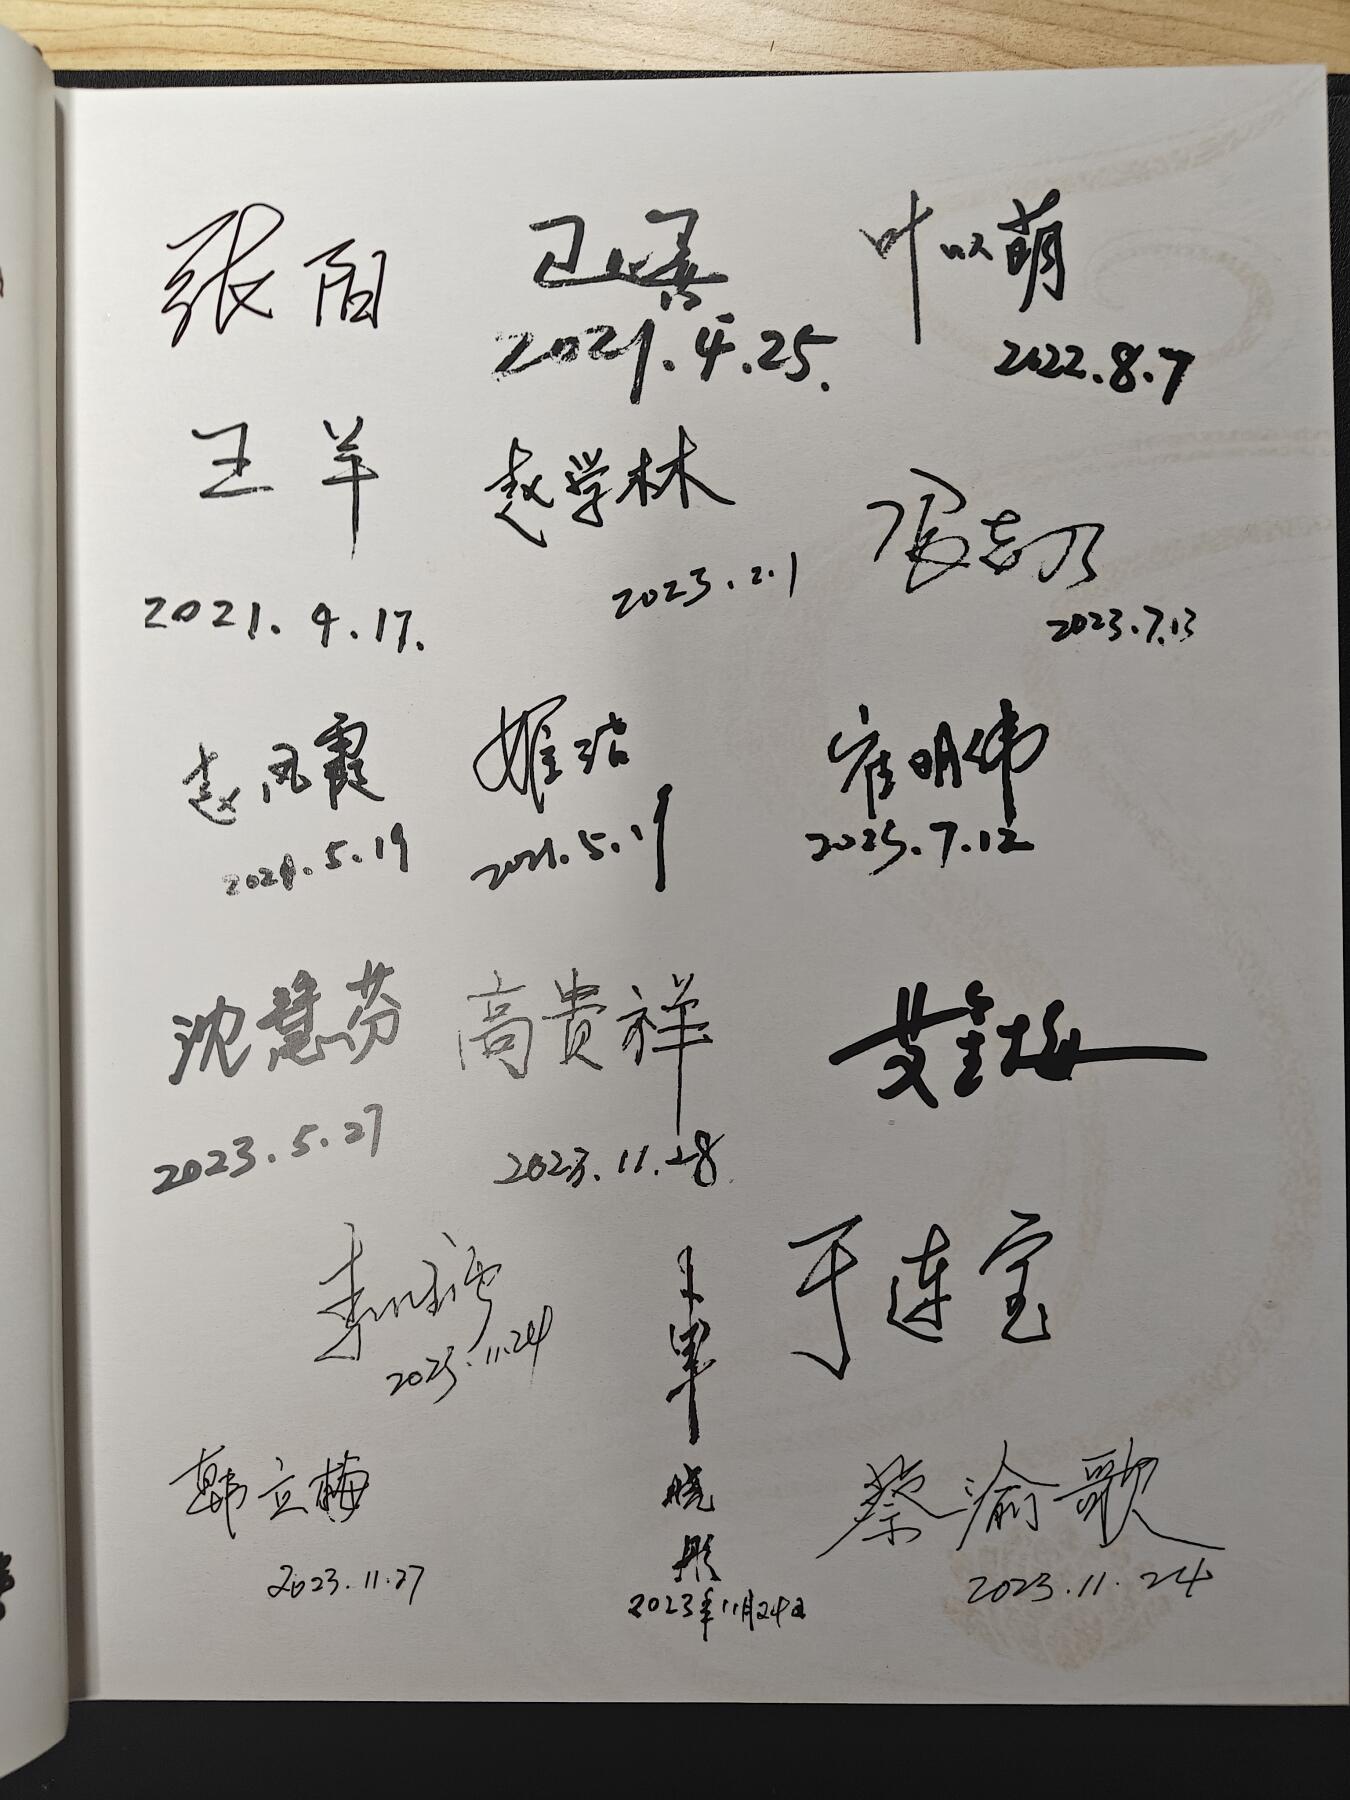 张
2021.4.25.
叶以萌
2022.8.7
王羊
2021.4.17.
赵学林
2023.2.1
2023.7.13
赵凤霞
2021.5.19
2021.5.19
崔明伟
2023.7.12
沈慧芬
2023.5.27
高贵祥
2023.11.28
艾金梅
李
2023.11.24
于连宝
韩立梅
2023.11.27
晓彤
2023年11月24日
蔡渝歌
2023.11.24